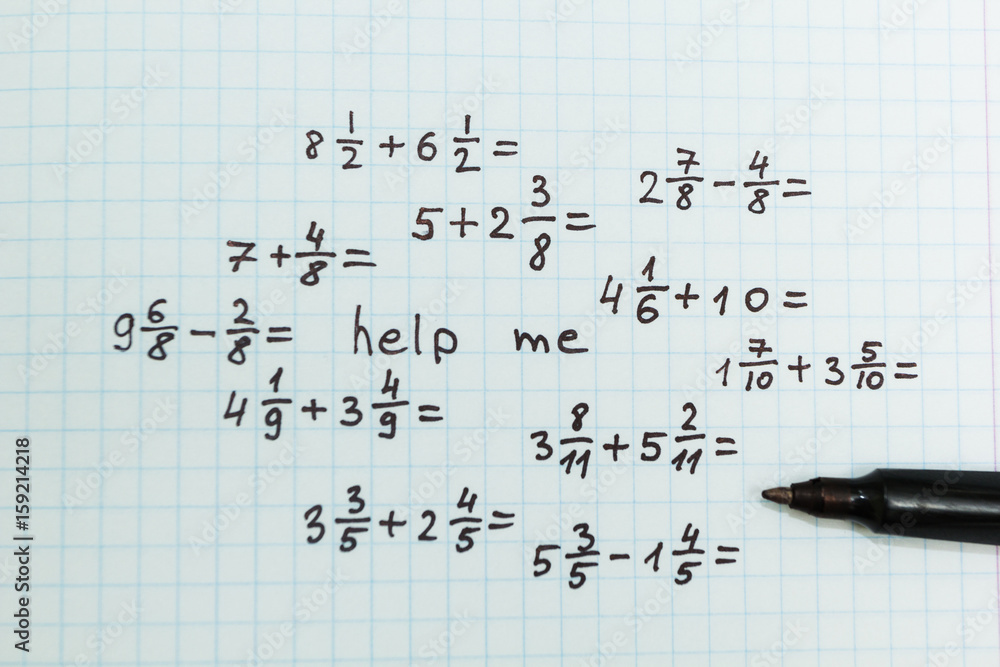 8 1/2 + 6 1/2 =
2 7/8 - 4/8 =
5 + 2 3/8 =
7 + 4/8 =
4 1/6 + 10 =
9 6/8 - 2/8 =
help me
1 7/10 + 3 5/10 =
4 1/9 + 3 4/9 =
3 8/11 + 5 2/11 =
3 3/5 + 2 4/5 =
5 3/5 - 1 4/5 =
Adobe Stock | #159214218